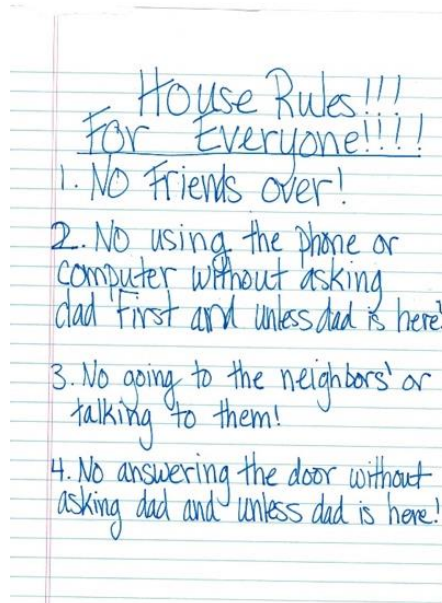 House Rules!!!
For Everyone!!!!
1. No Friends over!
2. No using the phone or
computer without asking
dad first and unless dad is here!
3. No going to the neighbors' or
talking to them!
4. No answering the door without
asking dad and unless dad is here!